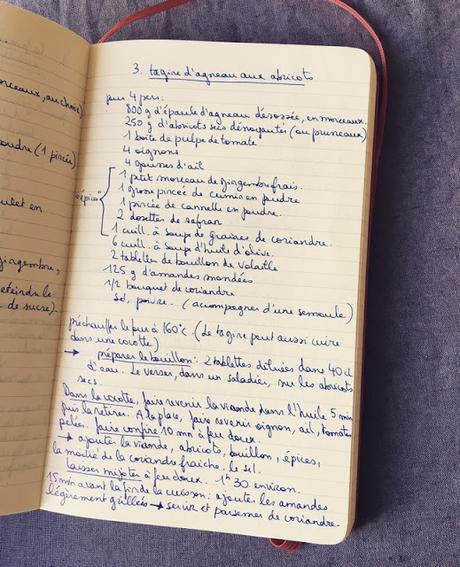 orceaux, au choix
oudre (1 pincée)
oulet en
ingembre,
eteindre le
de sucre).
3. tagine d'agneau aux abricots
pour 4 pers:
800 g d'épaule d'agneau désossée, en morceaux.
250 g d'abricots secs dénoyautés (ou pruneaux)
1 boîte de pulpe de tomate
4 oignons
4 gousses d'ail
1 petit morceau de gingembre frais.
1 grosse pincée de cumin en poudre
1 pincée de cannelle en poudre.
épices
2 dosettes de safran
1 cuill. à soupe de graines de coriandre.
6 cuill. à soupe d'huile d'olive.
2 tablettes de bouillon de volaille
125 g d'amandes mondées
1/2 bouquet de coriandre
sel, poivre. (accompagner d'une semoule)
préchauffer le four à 160°c. (le tagine peut aussi cuire
dans une cocotte)
→ préparer le bouillon: 2 tablettes diluées dans 40 cl
d'eau. Le verser, dans un saladier, sur les abricots
secs.
Dans la cocotte, faire revenir la viande dans l'huile 5 min
puis la retirer. A la place, faire revenir oignon, ail, tomates
pelées. faire confire 10 mn à feu doux.
→ ajouter la viande, abricots, bouillon, épices,
la moitié de la coriandre fraîche. le sel.
laisser mijoter à feu doux. 1h30 environ.
15 min avant la fin de la cuisson: ajouter les amandes
légèrement grillées → servir et parsemer de coriandre.